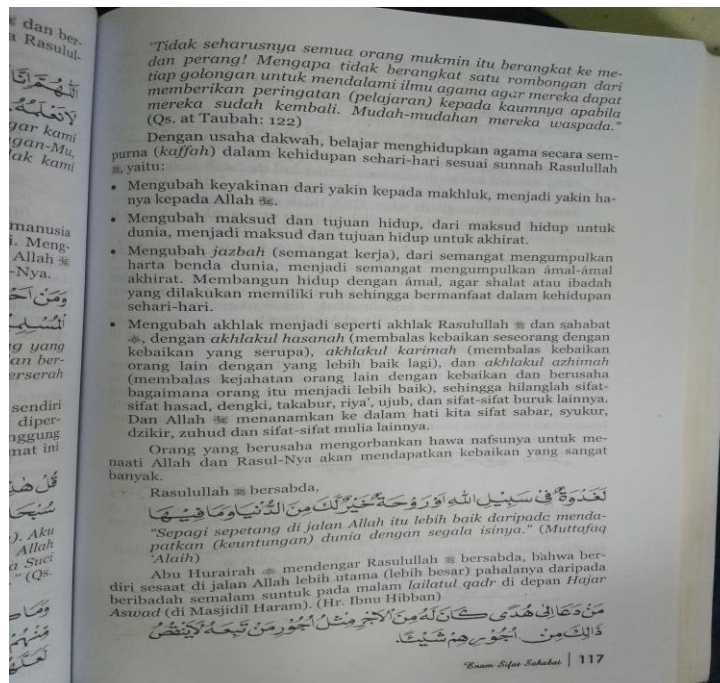 dan ber-
a Rasulul-
اَللّٰهُمَّ اِنَّا
لَا نَعْلَمُهُ.
gar kami
gan-Mu,
dak kami
manusia
i. Meng-
Allah ﷻ
-Nya.
وَمَنْ اَحْ
الْمُسْلِمِ
g yang
an ber-
erserah
sendiri
diper-
nggung
mat ini
قُلْ هٰذِ
سُبْحَا
). Aku
Allah
a Suci
." (Qs.
وَمَا كَ
مِنْهُمْ
لَعَلَّهُمْ
"Tidak seharusnya semua orang mukmin itu berangkat ke me-
dan perang! Mengapa tidak berangkat satu rombongan dari
tiap golongan untuk mendalami ilmu agama agar mereka dapat
memberikan peringatan (pelajaran) kepada kaumnya apabila
mereka sudah kembali. Mudah-mudahan mereka waspada."
(Qs. at Taubah: 122)
Dengan usaha dakwah, belajar menghidupkan agama secara sem-
purna (kaffah) dalam kehidupan sehari-hari sesuai sunnah Rasulullah
ﷺ, yaitu:
• Mengubah keyakinan dari yakin kepada makhluk, menjadi yakin ha-
nya kepada Allah ﷻ.
• Mengubah maksud dan tujuan hidup, dari maksud hidup untuk
dunia, menjadi maksud dan tujuan hidup untuk akhirat.
• Mengubah jazbah (semangat kerja), dari semangat mengumpulkan
harta benda dunia, menjadi semangat mengumpulkan ámal-ámal
akhirat. Membangun hidup dengan ámal, agar shalat atau ibadah
yang dilakukan memiliki ruh sehingga bermanfaat dalam kehidupan
sehari-hari.
• Mengubah akhlak menjadi seperti akhlak Rasulullah ﷺ dan sahabat
, dengan akhlakul hasanah (membalas kebaikan seseorang dengan
kebaikan yang serupa), akhlakul karimah (membalas kebaikan
orang lain dengan yang lebih baik lagi), dan akhlakul azhimah
(membalas kejahatan orang lain dengan kebaikan dan berusaha
bagaimana orang itu menjadi lebih baik), sehingga hilanglah sifat-
sifat hasad, dengki, takabur, riya', ujub, dan sifat-sifat buruk lainnya.
Dan Allah ﷻ menanamkan ke dalam hati kita sifat sabar, syukur,
dzikir, zuhud dan sifat-sifat mulia lainnya.
Orang yang berusaha mengorbankan hawa nafsunya untuk me-
naati Allah dan Rasul-Nya akan mendapatkan kebaikan yang sangat
banyak.
Rasulullah ﷺ bersabda,
لَغَدْوَةٌ فِى سَبِيْلِ اللّٰهِ اَوْ رَوْحَةٌ خَيْرٌ لَكَ مِنَ الدُّنْيَا وَمَا فِيْهَا
"Sepagi sepetang di jalan Allah itu lebih baik daripada menda-
patkan (keuntungan) dunia dengan segala isinya." (Muttafaq
'Alaih)
Abu Hurairah mendengar Rasulullah ﷺ bersabda, bahwa ber-
diri sesaat di jalan Allah lebih utama (lebih besar) pahalanya daripada
beribadah semalam suntuk pada malam lailatul qadr di depan Hajar
Aswad (di Masjidil Haram). (Hr. Ibnu Hibban)
مَنْ دَعَا اِلٰى هُدًى كَانَ لَهُ مِنَ الْاَجْرِ مِثْلُ اُجُوْرِ مَنْ تَبِعَهُ لَا يَنْقُصُ
ذَالِكَ مِنْ اُجُوْرِهِمْ شَيْئًا.
Enam Sifat Sahabat | 117